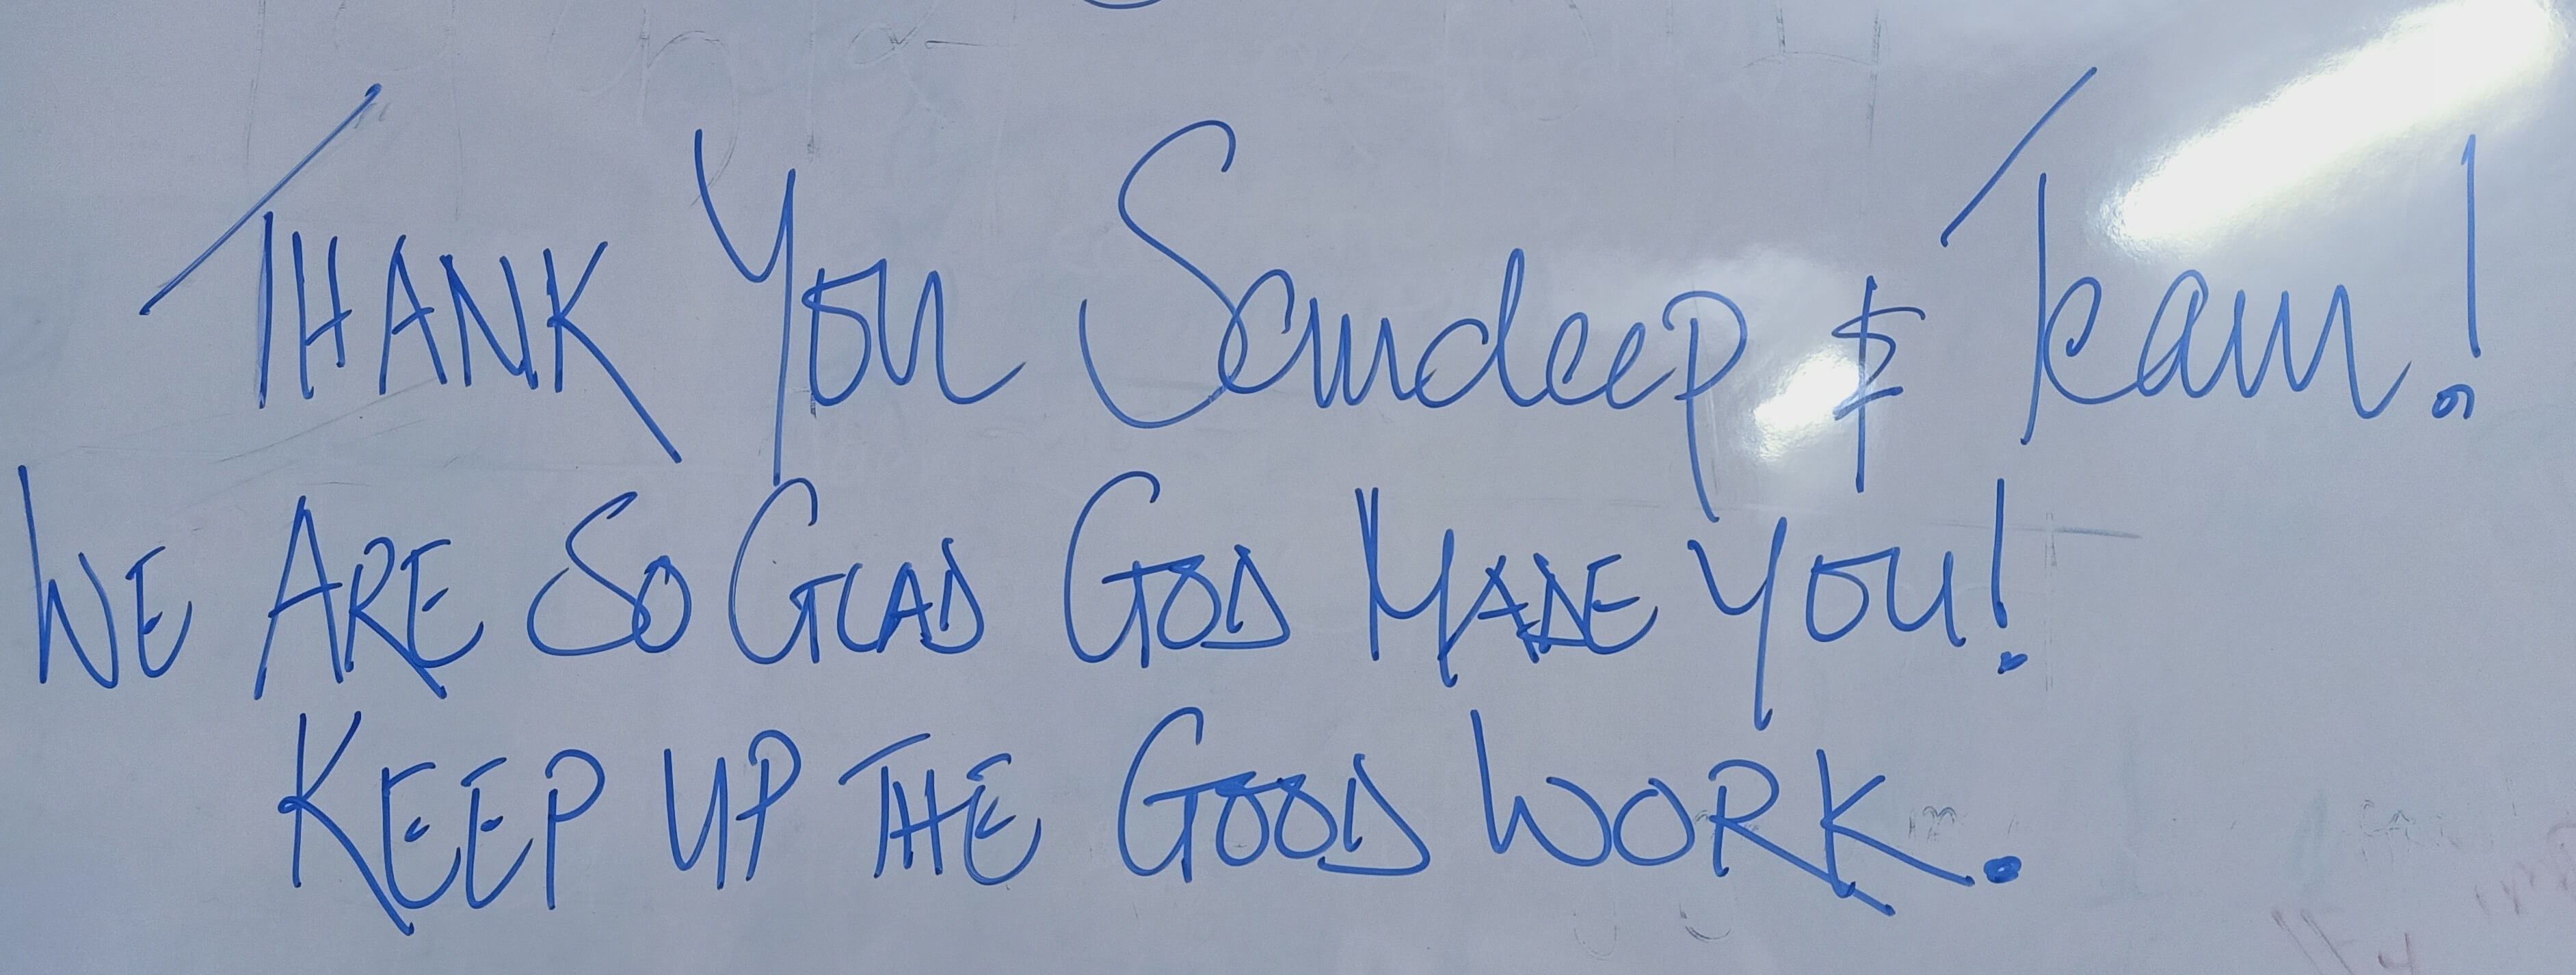 THANK YOU Sandeep & Team!
WE ARE SO GLAD GOD MADE YOU!
KEEP UP THE GOOD WORK.